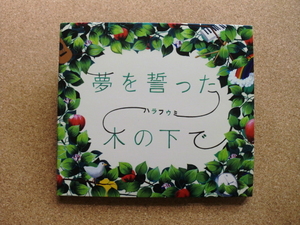 夢を誓った
ハラフウミ
木の下で